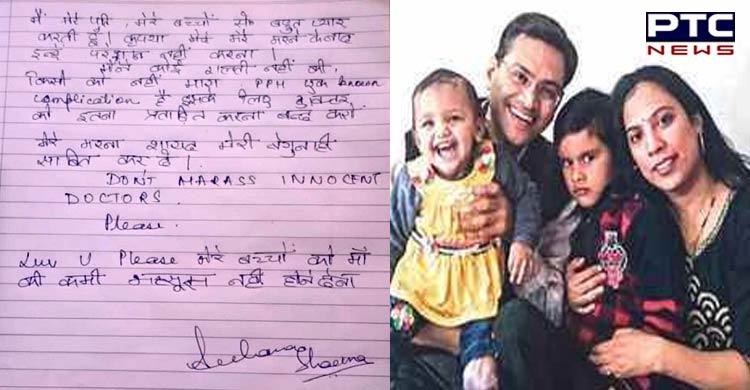 मैं मेरे पति, मेरे बच्चों से बहुत प्यार
करती हूँ। कृपया मेरे मेरे मरने के बाद
इन्हें परेशान नहीं करना
मैंने कोई गलती नहीं की,
किसी को नहीं मारा PPH एक known
complication है इसके लिए डॉक्टर
को इतना प्रताड़ित करना बन्द करो
मेरा मरना शायद मेरी बेगुनाही
साबित कर दे।
DON'T HARASS INNOCENT
DOCTORS.
Please.
Luv U Please मेरे बच्चों को माँ
की कमी महसूस नहीं होने देना
Archana
Sharma
PTC
NEWS